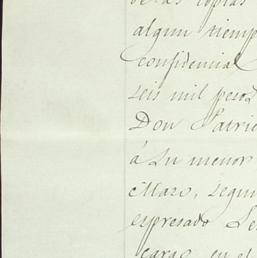 de las copias
algun tiemp
confidencial
seis mil pesos
Don Patric
á su menor
Mazo, segun
espresado Se
cargo, en el